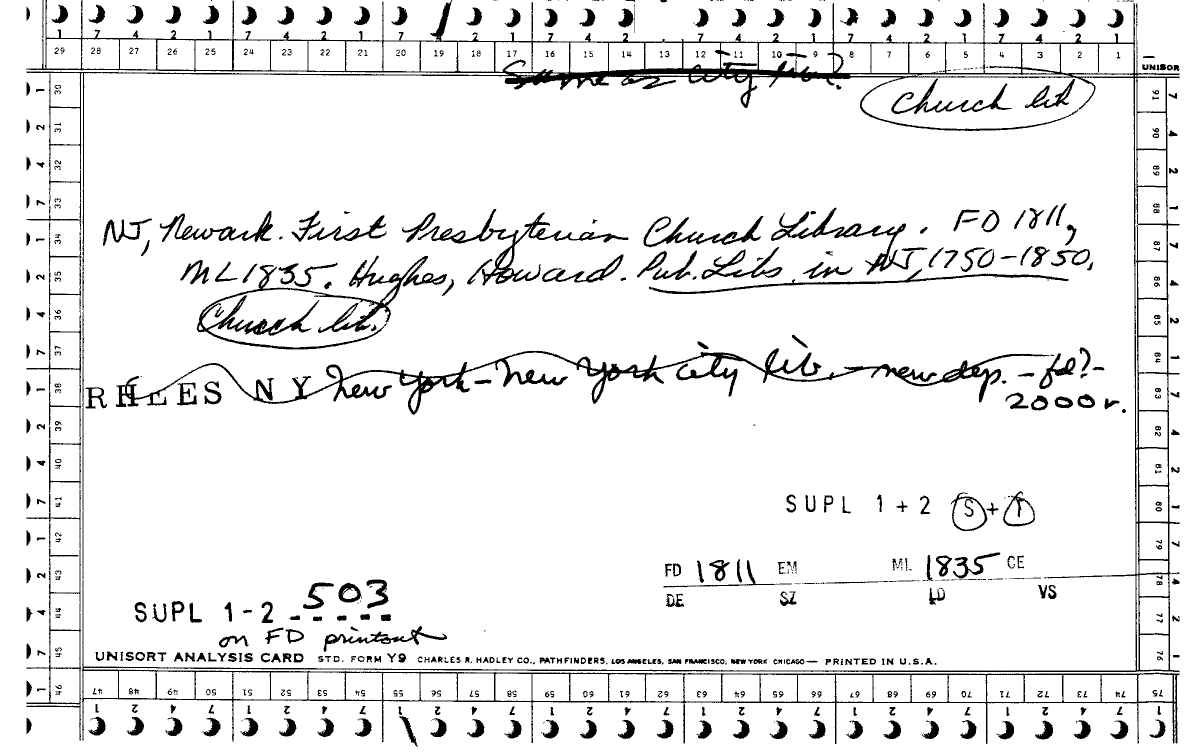 1 7 4 2 1 7 4 2 1 7 2 1 7 4 2 1 7 4 2 1 7 4 2 1 7 4 2 1
29 28 27 26 25 24 23 22 21 20 19 18 17 16 15 14 13 12 11 10 9 8 7 6 5 4 3 2 1
UNISOR
Same as City lib?
Church lib
NJ, Newark. First Presbyterian Church Library. FD 1811,
ML 1835. Hughes, Howard. Pub. Libs in NJ, 1750-1850.
Church lib.
RHEES NY New York - New York city lib. - new dep. - fd? -
2000 v.
SUPL 1 + 2 S + F
FD 1811 EM ML 1835 CE
DE SZ LD VS
SUPL 1-2 503
on FD printout
UNISORT ANALYSIS CARD STD. FORM Y9 CHARLES R. HADLEY CO., PATHFINDERS, LOS ANGELES, SAN FRANCISCO, NEW YORK CHICAGO — PRINTED IN U.S.A.
47 48 49 50 51 52 53 54 55 56 57 58 59 60 61 62 63 64 65 66 67 68 69 70 71 72 73 74 75